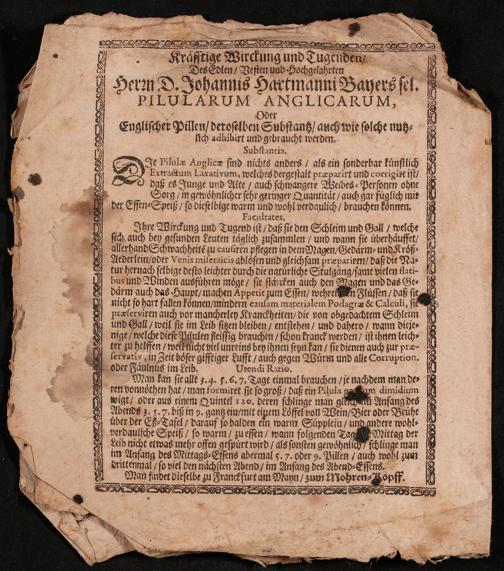 Kräfftige Wirckung und Tugenden/
Des Edlen/ Vesten und Hochgelahrten
Herrn D. Johannis Hartmanni Bayers sel.
PILULARUM ANGLICARUM,
Oder
Englischer Pillen/ deroselben Substantz/ auch wie solche nutz-
lich adhibirt und gebraucht werden.
Substantia.
Die Pilulæ Anglicæ sind nichts anders / als ein sonderbar künstlich
Extractum Laxativum, welches dergestalt præparirt und corrigirt ist/
daß es Junge und Alte / auch schwangere Weibs-Personen ohne
Sorg / in gewöhnlicher sehr geringer Quantität / auch gar füglich mit
der Essen-Speiß / so dieselbige warm und wohl verdaulich / brauchen können.
Facultates.
Ihre Wirckung und Tugend ist / daß sie den Schleim und Gall / welche
sich auch bey gesunden Leuten täglich zusammlen / und wann sie überhäuffet/
allerhand Schwachheits zu causiren pflegen in dem Magen/ Gedärm- und Kröß-
Aederlein/ oder Venis miseraicis ablösen und gleichsam præpariren/ daß die Na-
tur hernach selbige desto leichter durch die natürliche Stulgäng/ samt vielen flati-
bus und Winden ausführen möge / sie stärcken auch den Magen und das Ge-
därm auch das Haupt/ machen Appetit zum Essen/ wehren den Flüssen / daß sie
nicht so hart fallen können/ mindern causam materialem Podagræ & Calculi, sie
præserviren auch vor mancherley Kranckheiten / die von obgedachtem Schleim
und Gall / weil sie im Leib sitzen bleiben / entstehen / und dahero / wann dieje-
nige / welche diese Pilulen fleissig brauchen / schon kranck werden / ist ihnen leich-
ter zu helffen / weil nicht viel unreines bey ihnen seyn kan / sie dienen auch zur præ-
servativ, in Zeit böser gifftiger Lufft / auch gegen Würm und alle Corruption,
oder Fäulnis im Leib. Utendi Ratio.
Man kan sie alle 3. 4. 5. 6. 7. Tage einmal brauchen / je nachdem man de-
ren vonnöthen hat / man formiret sie so groß / daß ein Pilula granum dimidium
wigt / oder aus einem Quintel 120. deren schlinge man gleich im Anfang des
Abends 3. 5. 7. biß in 9. gantz ein/ mit einem Löffel voll Wein/ Bier oder Brühe
über der Eß-Tafel / darauf so balden ein warm Süpplein / und andere wohl-
verdauliche Speiß / so warm / zu essen / wann folgenden Tages Mittag der
Leib nicht etwas mehr offen gespürt wird / als sonsten gewöhnlich / schlinge man
im Anfang des Mittags-Essens abermal 5. 7. oder 9. Pillen / auch wohl zum
drittenmal / so viel den nächsten Abend / im Anfang des Abend-Essens.
Man findet dieselbe zu Franckfurt am Mayn / zum Mohren-Kopff.